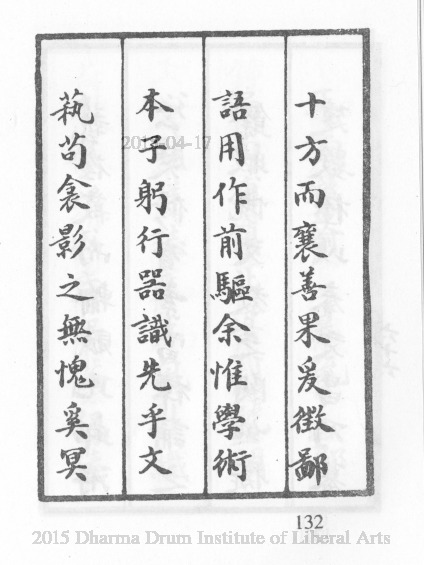 十方而襄善果爰徵鄙
語用作前驅余惟學術
本子躬行器識先乎文
蓺苟衾影之無愧奚冥
132
2013-04-17
2015 Dharma Drum Institute of Liberal Arts